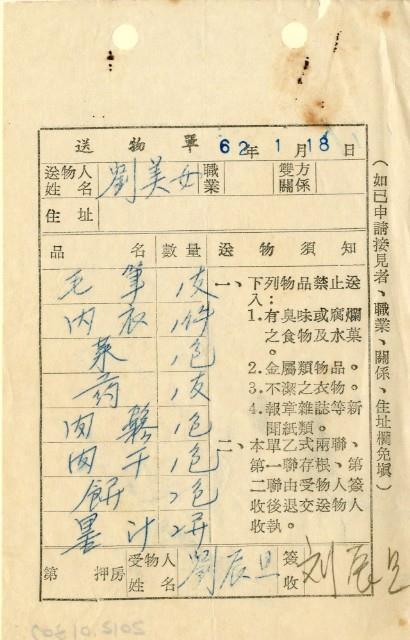 送物單 62年 1月 18日
送物人姓名 劉美女 職業 雙方關係
住址
品名 數量 送物須知
毛筆 1支
內衣 1件
菜 1包
药 1支
肉鬆 1包
肉干 1包
餅 2包
墨汁 2瓶
一、下列物品禁止送入：
1.有臭味或腐爛之食物及水菓。
2.金屬類物品。
3.不潔之衣物。
4.報章雜誌等新聞紙類。
二、本單乙式兩聯、第一聯根、簽第二聯由受物人收後退交送物人收執。
第 押房 受物人姓名 劉辰旦 簽收 刘辰旦
（如已申請接見者、職業、關係、住址欄免填）